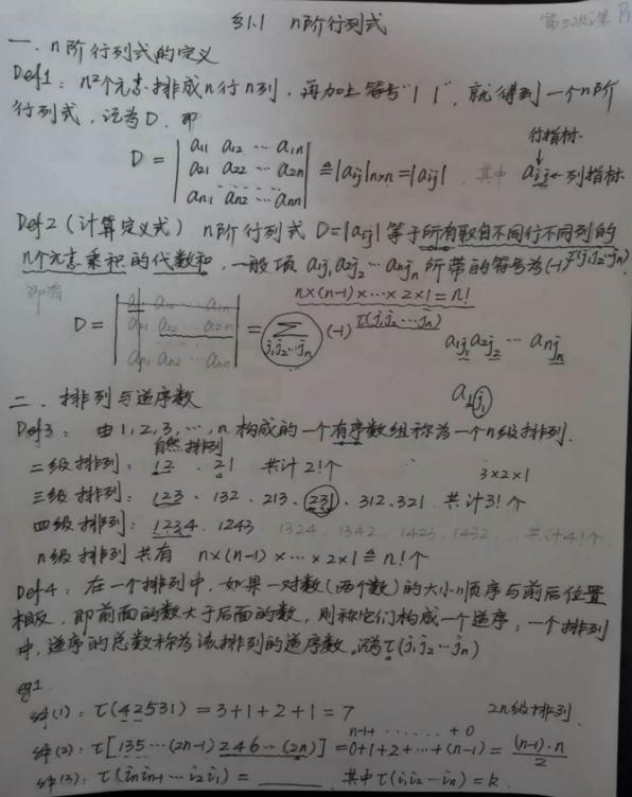 §1.1 n阶行列式
第三次课 P1
一、n阶行列式的定义
Def1：n²个元素排成n行n列，再加上符号"| |"，就得到一个n阶
行列式，记为D，即
行指标
D = | a11 a12 … a1n |
| a21 a22 … a2n | ≜ |aij|n×n = |aij| 其中 aij ← 列指标
| an1 an2 … ann |
Def2（计算定义式）n阶行列式 D=|aij| 等于所有取自不同行不同列的
n个元素乘积的代数和，一般项 a1j1 a2j2 … anjn 所带的符号为(-1)^τ(j1j2…jn)
即有
n×(n-1)×…×2×1=n!
| a11 a12 … a1n |
D = | a21 a22 … a2n | = ∑j1j2…jn (-1)^τ(j1j2…jn) a1j1 a2j2 … anjn
| an1 an2 … ann |
二、排列与逆序数
Def3：由1,2,3,…,n 构成的一个有序数组称为一个n级排列.
自然排列
二级排列：12 、21 共计2!个 3×2×1
三级排列：123、132、213、231、312、321 共计3!个
四级排列：1234、1243、1324、1342、1423、1432 … 共计4!个
n级排列 共有 n×(n-1)×…×2×1 ≜ n!个
Def4：在一个排列中，如果一对数（两个数）的大小顺序与前后位置
相反，即前面的数大于后面的数，则称它们构成一个逆序，一个排列
中，逆序的总数称为该排列的逆序数，记为τ(j1j2…jn)
eg1
解(1)：τ(42531) = 3+1+2+1 = 7 2n级排列
n-1+ …… +0
解(2)：τ[135…(2n-1)246…(2n)] = 0+1+2+…+(n-1) = (n-1)·n/2
解(3)：τ(in in-1 … i2 i1) = ______ 其中τ(i1i2…in)=k.